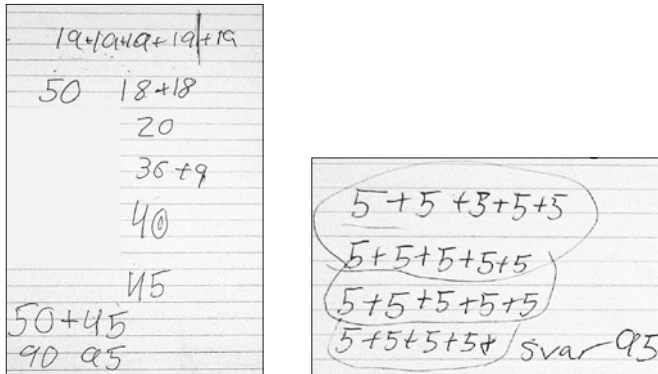 19+19+19+19+19
50 18+18
20
36+9
40
45
50+45
90 95
5+5+5+5+5
5+5+5+5+5
5+5+5+5+5
5+5+5+5+ svar 95